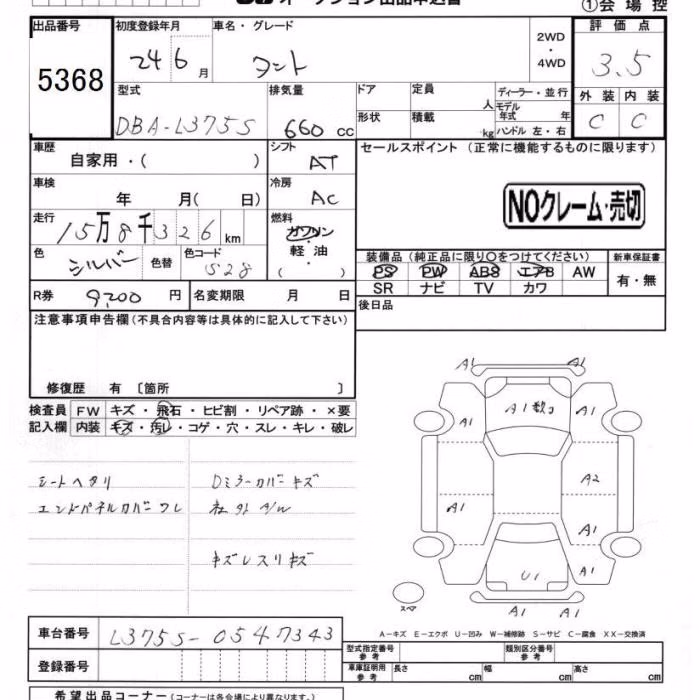 オークション出品申込書
①会場控
出品番号 初度登録年月 車名・グレード 2WD・4WD 評価点
5368 24 6月 タント 3.5
型式 排気量 ドア 定員 人 ディーラー・並行 外装 内装
DBA-L375S 660 cc 形状 積載 kg モデル年式 年 ハンドル 左・右 C C
車歴 自家用・( ) シフト AT セールスポイント (正常に機能するものに限ります)
車検 年 月( 日) 冷房 AC
NOクレーム・売切
走行 15万8千326km 燃料 ガソリン・軽油 ( )
色 シルバー 色替 色コード S28
装備品(純正品に限り○をつけてください) 新車保証書
PS PW ABS エアB AW 有・無
SR ナビ TV カワ
R券 9,200円 名変期限 月 日 後日品
注意事項申告欄(不具合内容等は具体的に記入して下さい)
修復歴 有 〔箇所 〕
検査員 FW キズ・飛石・ヒビ割・リペア跡・×要
記入欄 内装 キズ・汚レ・コゲ・穴・スレ・キレ・破レ
シートヘタリ Dミラーカバーキズ
エンドパネルカバーワレ 社外A/W
キズレスリキズ
A1 A1
A1 A1
A1
A2
A1
A1
A1
U1
A1 A1
スペア
A-キズ E-エクボ U-凹み W-補修跡 S-サビ C-腐食 XX-交換済
車台番号 L375S-0547343
登録番号
型式指定番号 参考 類別区分番号 参考
車庫証明用 参考 長さ cm 幅 cm 高さ cm
希望出品コーナー(コーナーは各会場により異なります。)